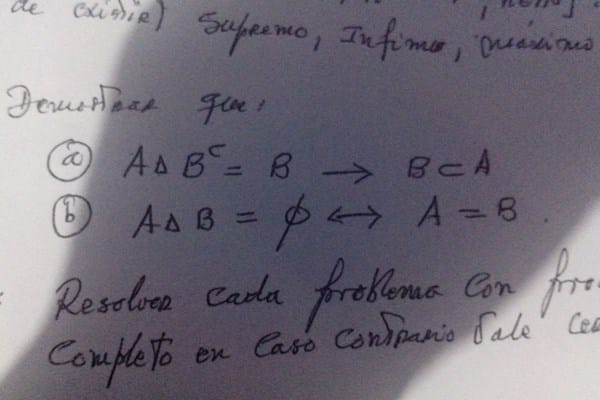 de existir) Supremo, Infimo, máximo
Demostrar que:
ⓐ A Δ Bᶜ = B → B ⊂ A
ⓑ A Δ B = ϕ ↔ A = B.
Resolver cada problema con
Completo en Caso Contrario Vale